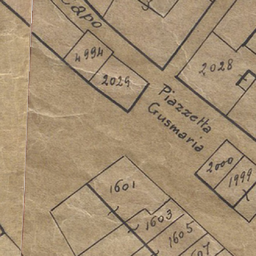 Capo
4994
2029
2028
Piazzetta
Gusmaria
2000
1999
1601
1603
1605